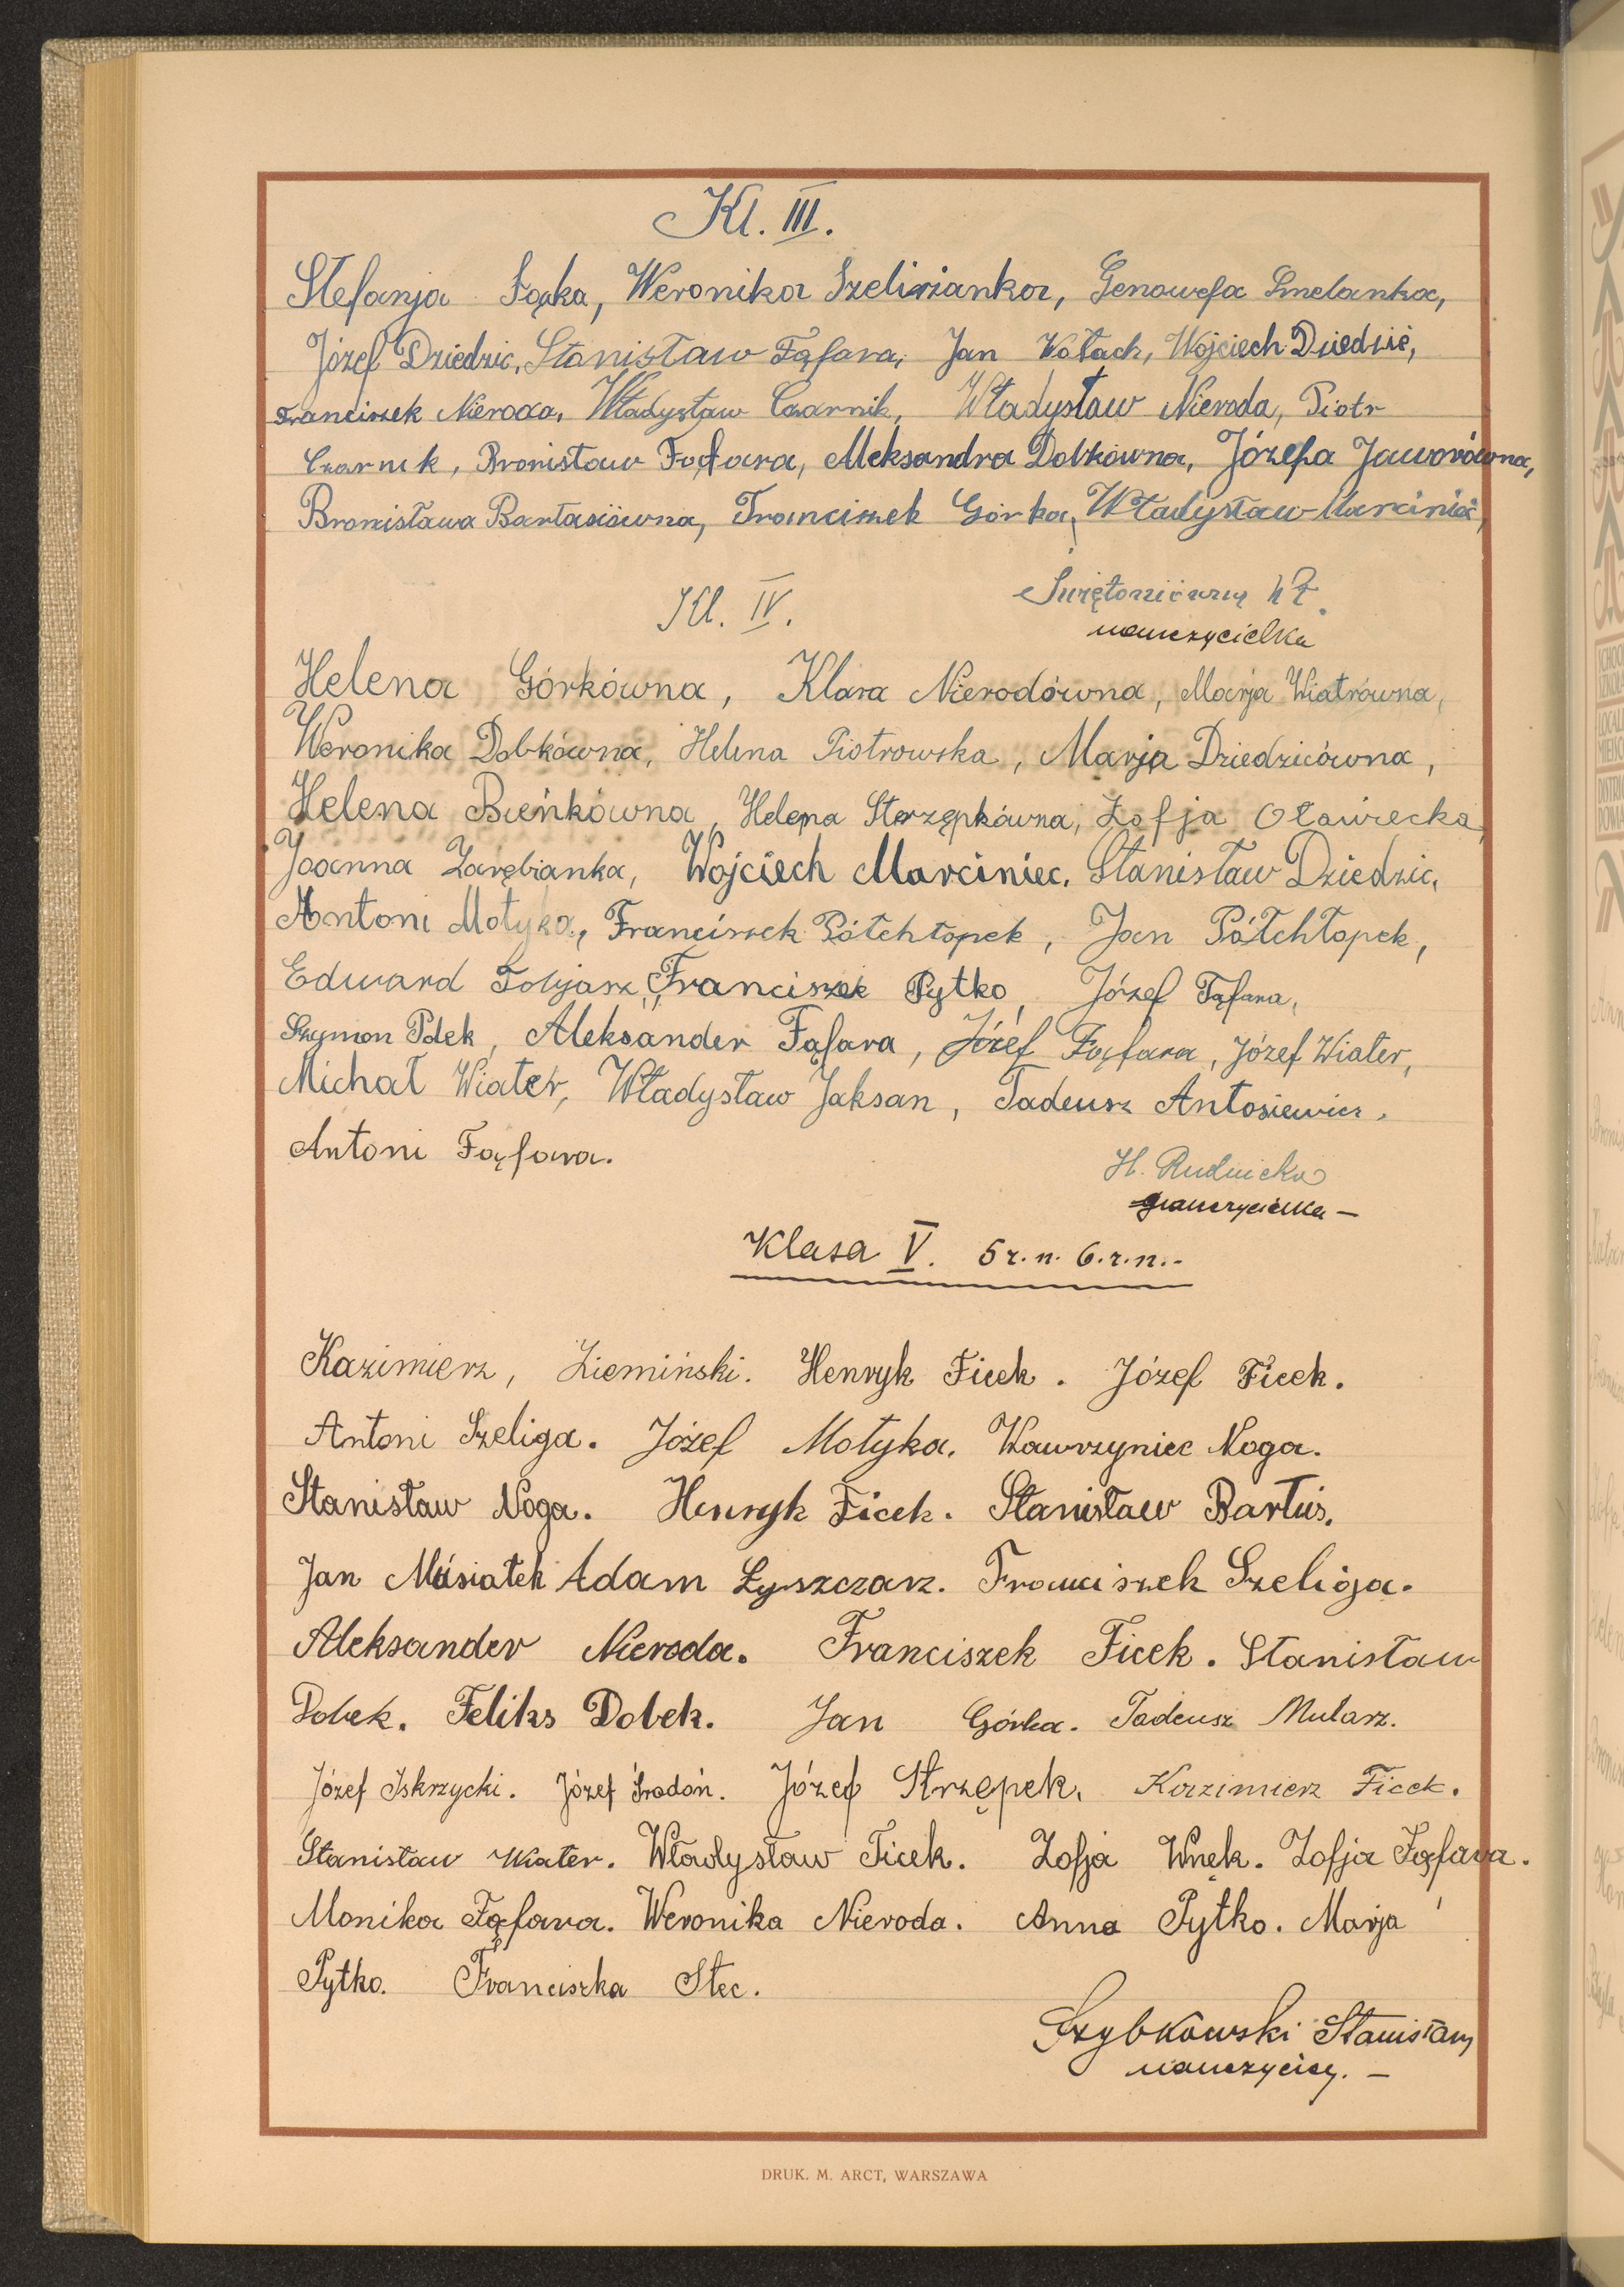 Kl. III.
Stefanja Fąka, Weronika Szeliżanka, Genowefa Smelanka,
Józef Dziedzic, Stanisław Fąfara, Jan Kołach, Wojciech Dziedzic,
Franciszek Nieroda, Władysław Czarnik, Władysław Nieroda, Piotr
Czarnik, Bronisław Fąfara, Aleksandra Dobkówna, Józefa Jaworówna,
Bronisława Bartasiówna, Franciszek Górka, Władysław Marciniec,
Kl. IV.
nauczycielka
Helena Górkówna, Klara Nierodówna, Marja Wiatrówna,
Weronika Dobkówna, Helena Piotrowska, Marja Dziedzicówna,
Helena Bieńkówna, Helena Sterzępkówna, Zofja Oławiecka,
Joanna Zarębianka, Wojciech Marciniec. Stanisław Dziedzic,
Antoni Motyka, Franciszek Półchłopek, Jan Półchłopek,
Edward Tobjasz, Franciszek Pytko, Józef Fąfara,
Szymon Pdek, Aleksander Fąfara, Józef Fąfara, Józef Wiater,
Michał Wiater, Władysław Jaksan, Tadeusz Antosiewicz,
Antoni Fąfara.
H. Rudnicka
nauczycielka –
Klasa V. 5 r. n. 6. r. n. -
Kazimierz, Ziemiński. Henryk Ficek. Józef Ficek.
Antoni Szeliga. Józef Motyka. Wawrzyniec Noga.
Stanisław Noga. Henryk Ficek. Stanisław Bartuś.
Jan Musiałek Adam Łyszczarz. Franciszek Szeliga.
Aleksander Nieroda. Franciszek Ficek. Stanisław
Dobek. Feliks Dobek. Jan Górka. Tadeusz Mularz.
Józef Iskrzycki. Józef Środoń. Józef Strzępek. Kazimierz Ficek.
Stanisław Wiater. Władysław Ficek. Zofja Wnęk. Zofja Fąfara.
Monika Fąfara. Weronika Nieroda. Anna Pytko. Marja
Pytko. Franciszka Stec.
Szybkowski Stanisław
nauczyciel. –
DRUK. M. ARCT, WARSZAWA